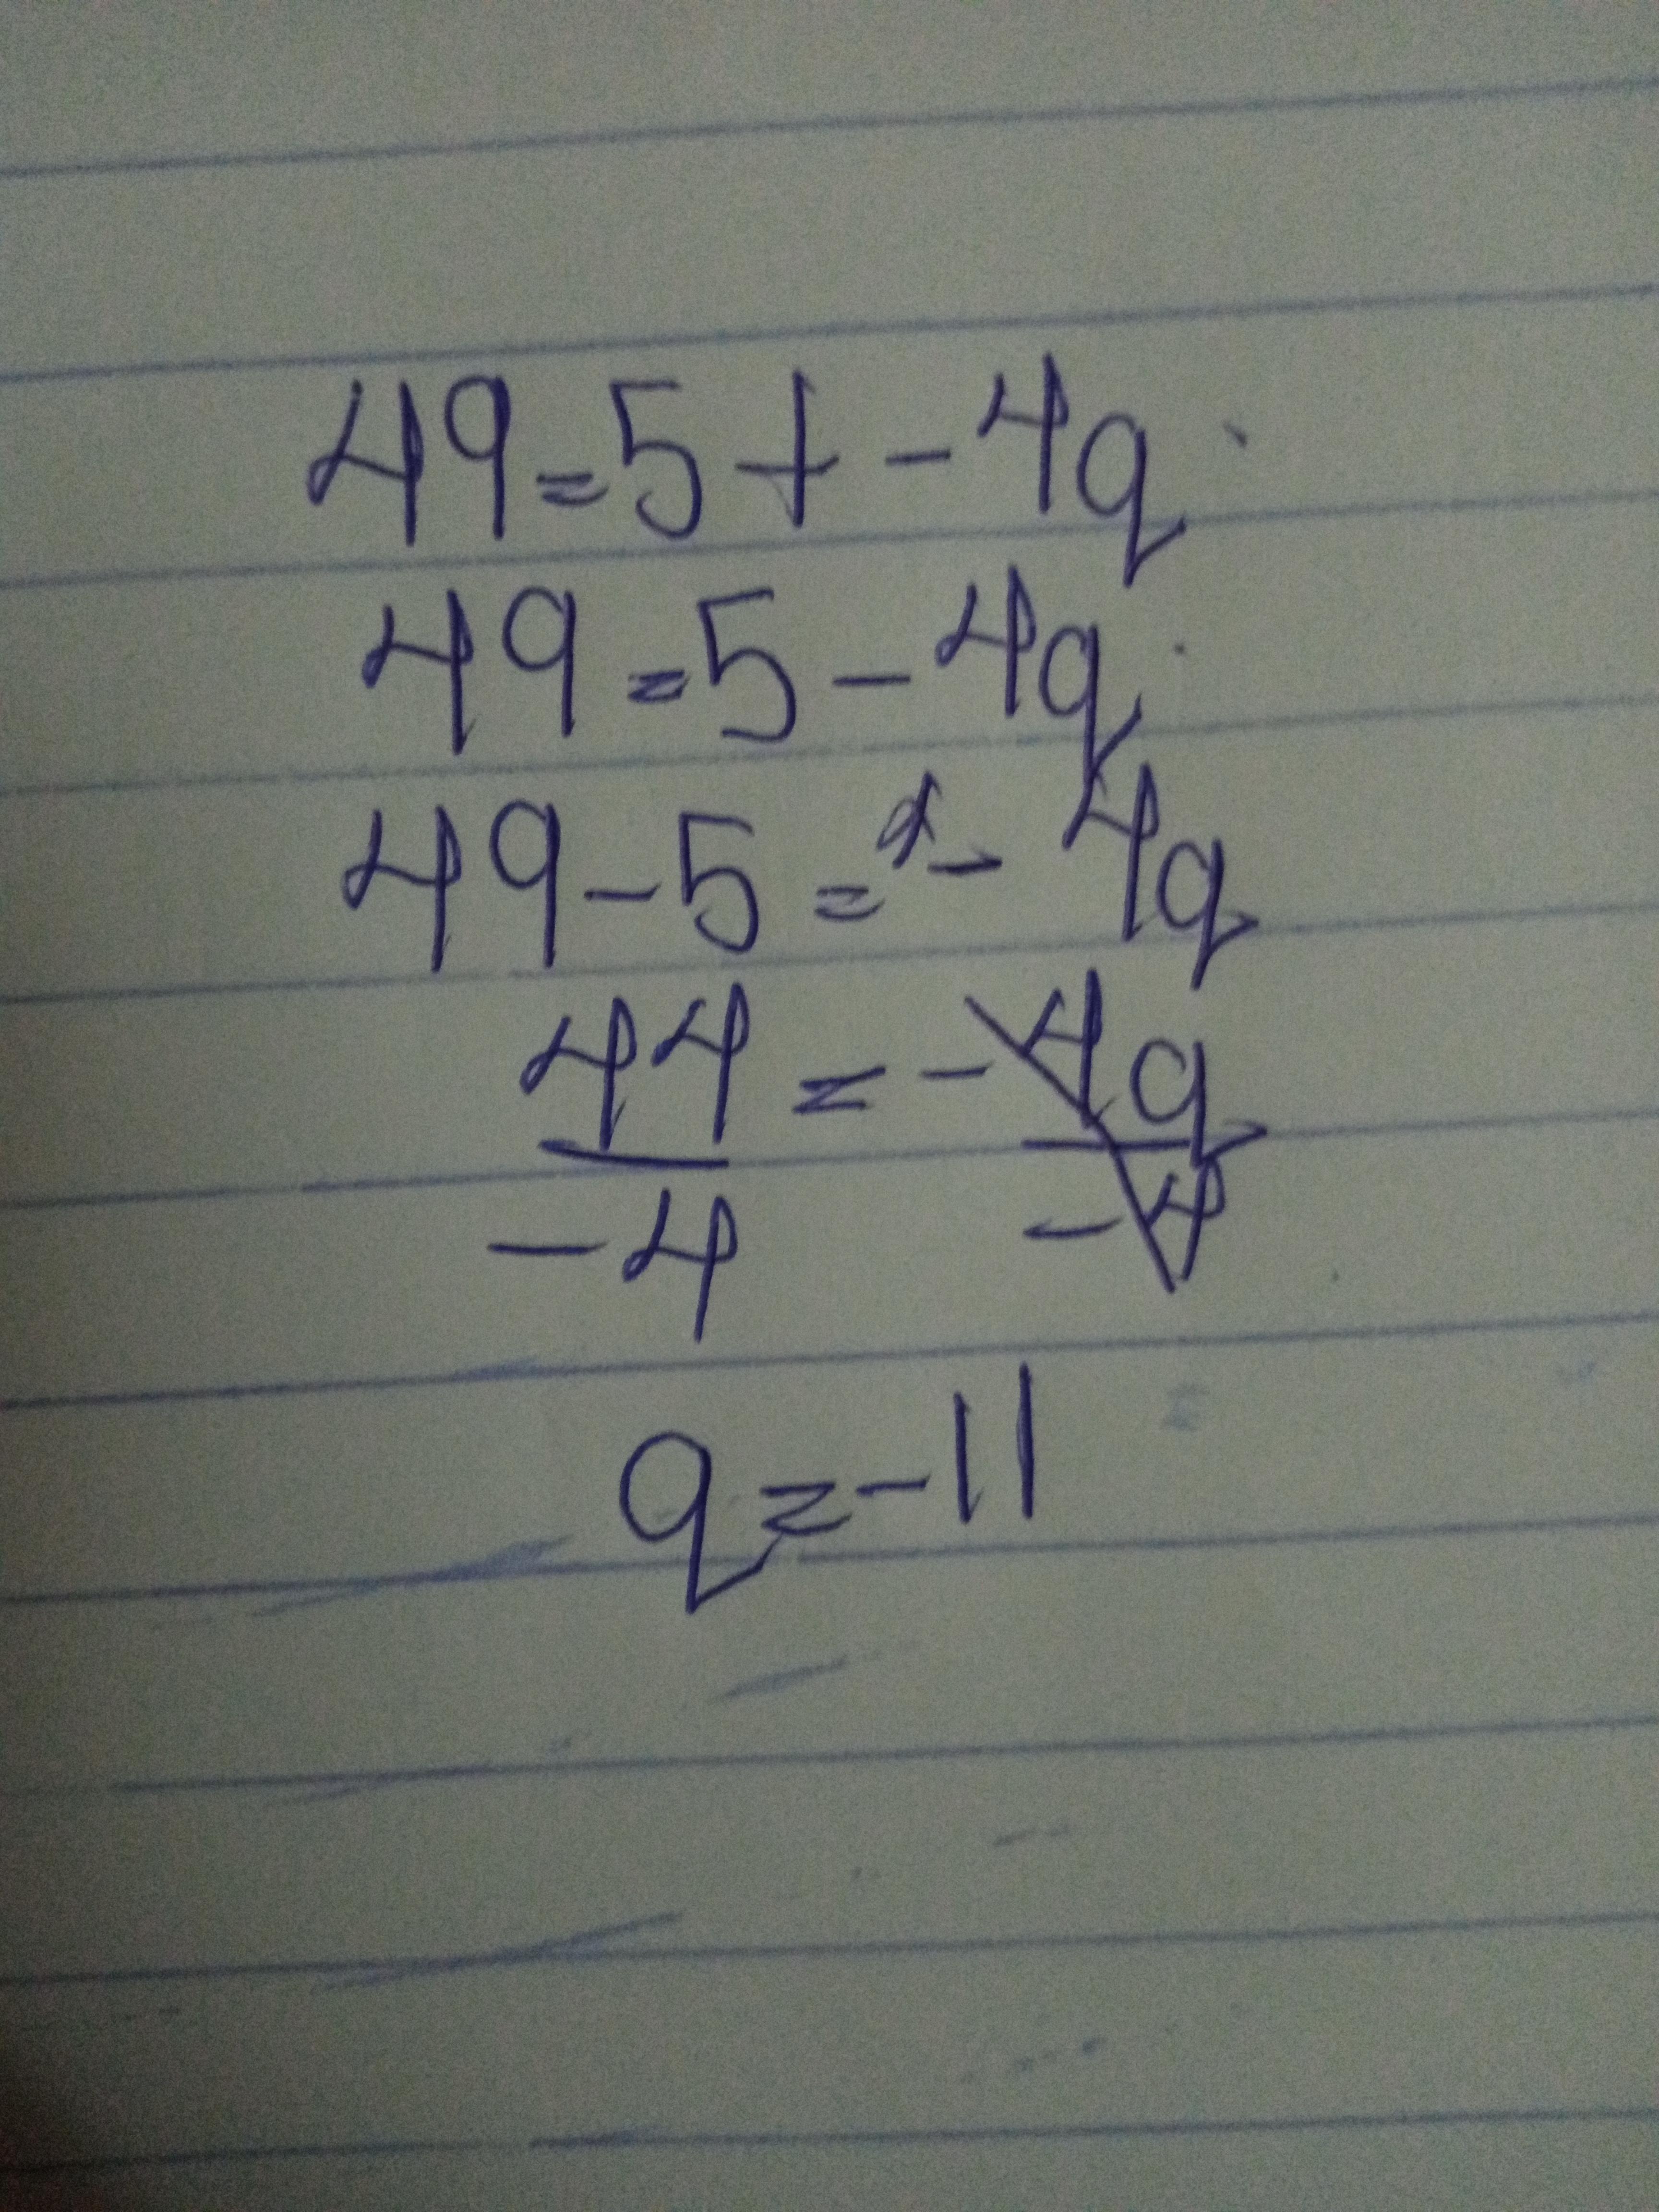 49=5+-4q
49=5-4q
49-5=-4q
44=-4q
-4 -4
q=-11